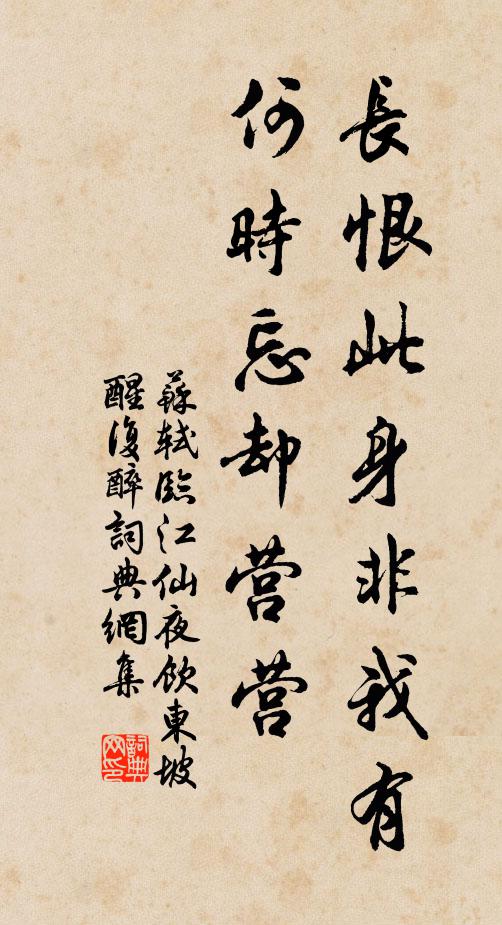 長恨此身非我有
何時忘却营营
蘇轼臨江仙夜飲東坡
醒復醉詞典網集
詞典
网印